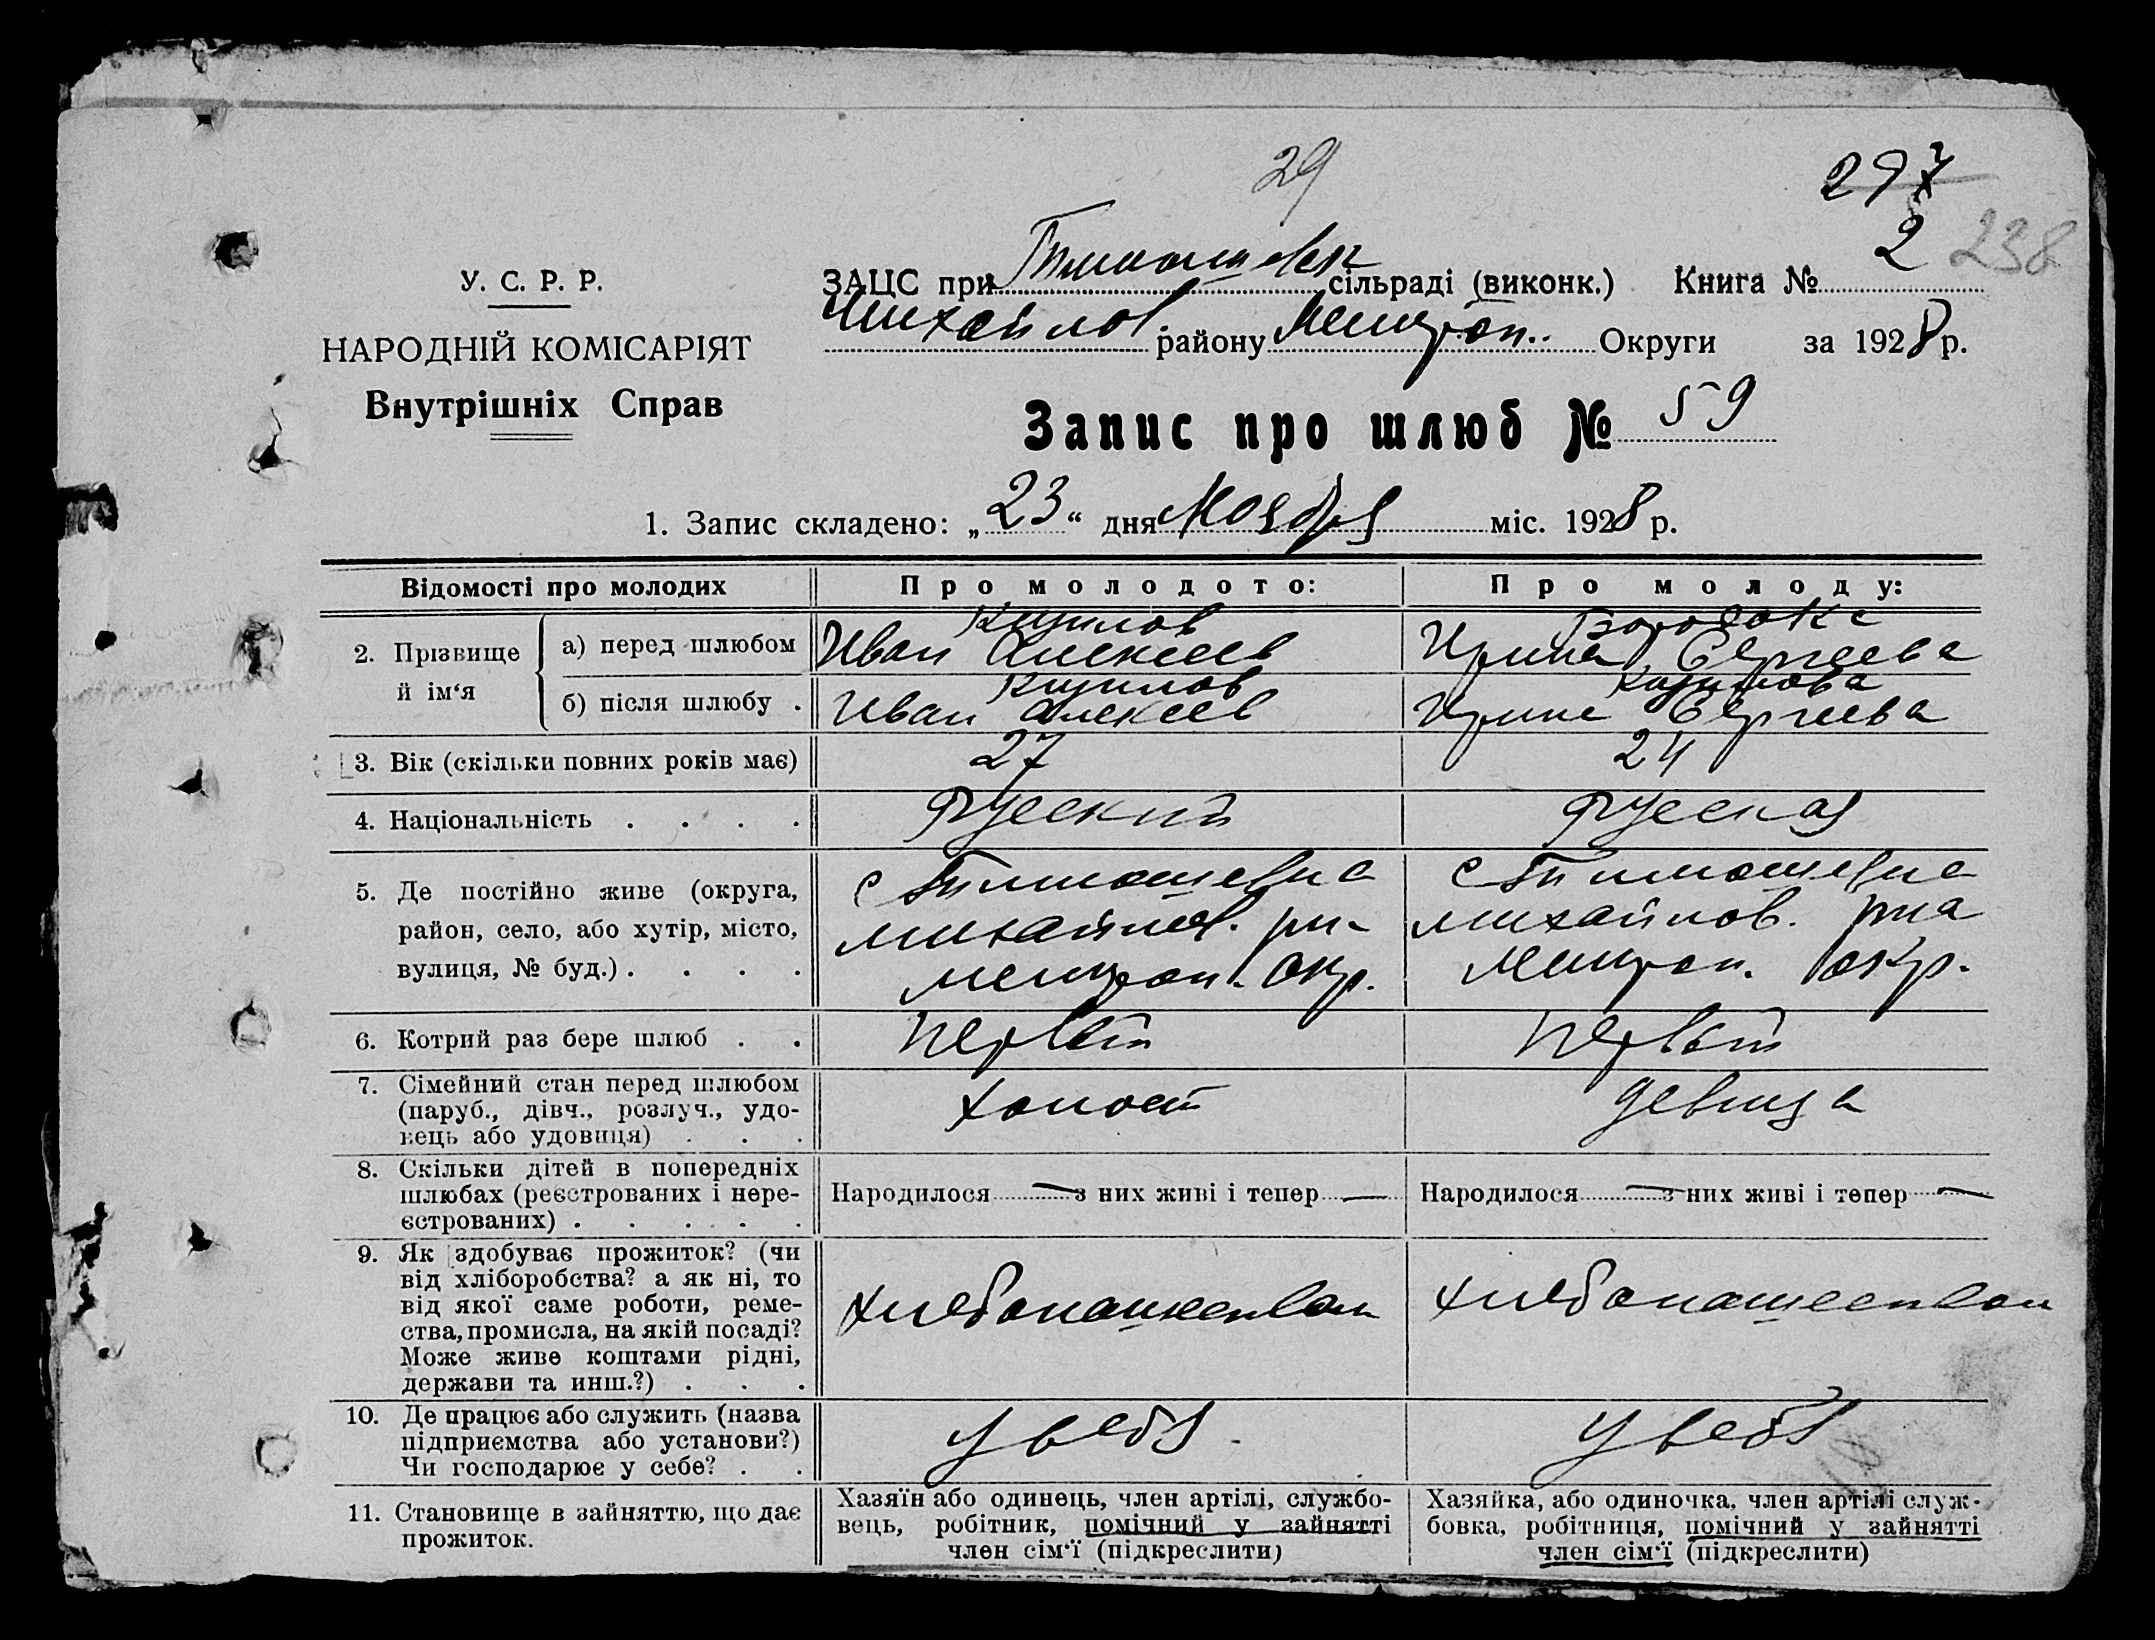 29
297
2 238
У. С. Р. Р.
НАРОДНІЙ КОМІСАРІЯТ
Внутрішніх Справ
ЗАЦС при Тимошевск сільраді (виконк.) Книга №
Михайлов. району Мелитоп.. Округи за 1928 р.
Запис про шлюб № 59
1. Запис складено: „23“ дня Ноября міс. 1928 р.
Відомості про молодих
Про молодого:
Про молоду:
2. Прізвище й ім‘я
а) перед шлюбом
Иван Алексеев
Ирина Сергеева
б) після шлюбу .
Иван Алексеев
Ирина Сергеева
3. Вік (скільки повних років має)
27
24
4. Національність . . . .
Русский
Русская
5. Де постійно живе (округа,
район, село, або хутір, місто,
вулиця, № буд.) . . . .
с Тимошевка
михайлов. р-на
мелитоп. окр.
с Тимошевка
михайлов. р-на
Мелитоп. окр.
6. Котрий раз бере шлюб . .
первый
первый
7. Сімейний стан перед шлюбом
(паруб., дівч., розлуч., удо-
вець або удовиця) . . .
холост
девица
8. Скільки дітей в попередніх
шлюбах (реєстрованих і нере-
єстрованих) . . . . .
Народилося — з них живі і тепер —
Народилося — з них живі і тепер —
9. Як здобуває прожиток? (чи
від хліборобства? а як ні, то
від якої саме роботи, реме-
ства, промисла, на якій посаді?
Може живе коштами рідні,
держави та инш.?) . . .
хлебопашеством
хлебопашеством
10. Де працює або служить (назва
підприємства або установи?)
Чи господарює у себе? . .
у себя
у себя
11. Становище в зайняттю, що дає
прожиток.
Хазяїн або одинець, член артілі, службо-
вець, робітник, помічний у зайнятті
член сім‘ї (підкреслити)
Хазяйка, або одиночка, член артілі служ-
бовка, робітниця, помічний у зайнятті
член сім‘ї (підкреслити)